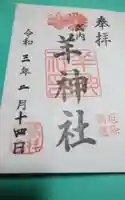 奉拝
式内
羊神社
令和三年二月十四日